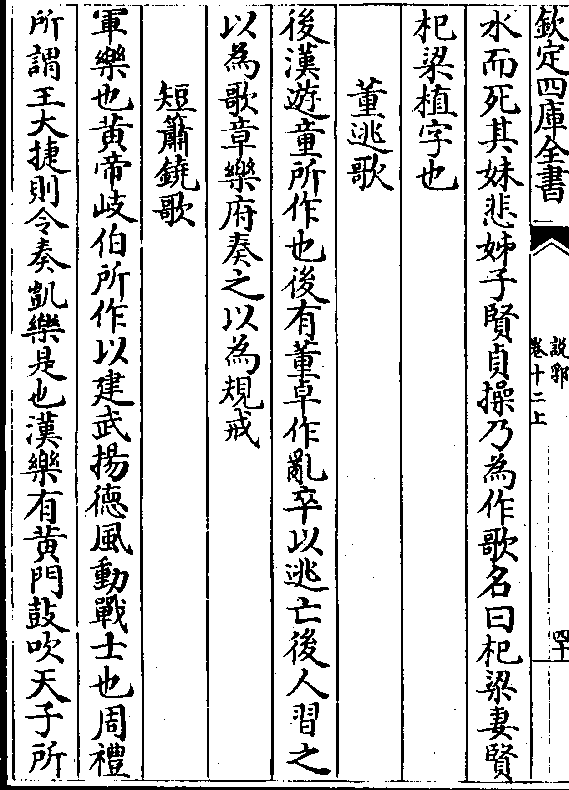 欽定四庫全書
說郛
卷十二上
四十
水而死其妹悲姊子賢貞操乃為作歌名曰杞梁妻賢
杞梁植字也
董逃歌
後漢遊童所作也後有董卓作亂卒以逃亡後人習之
以為歌章樂府奏之以為規戒
短簫鐃歌
軍樂也黄帝岐伯所作以建武揚德風動戰士也周禮
所謂王大捷則令奏凱樂是也漢樂有黄門鼓吹天子所